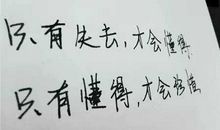 只有失去，才会懂得
只有懂得，才会珍惜